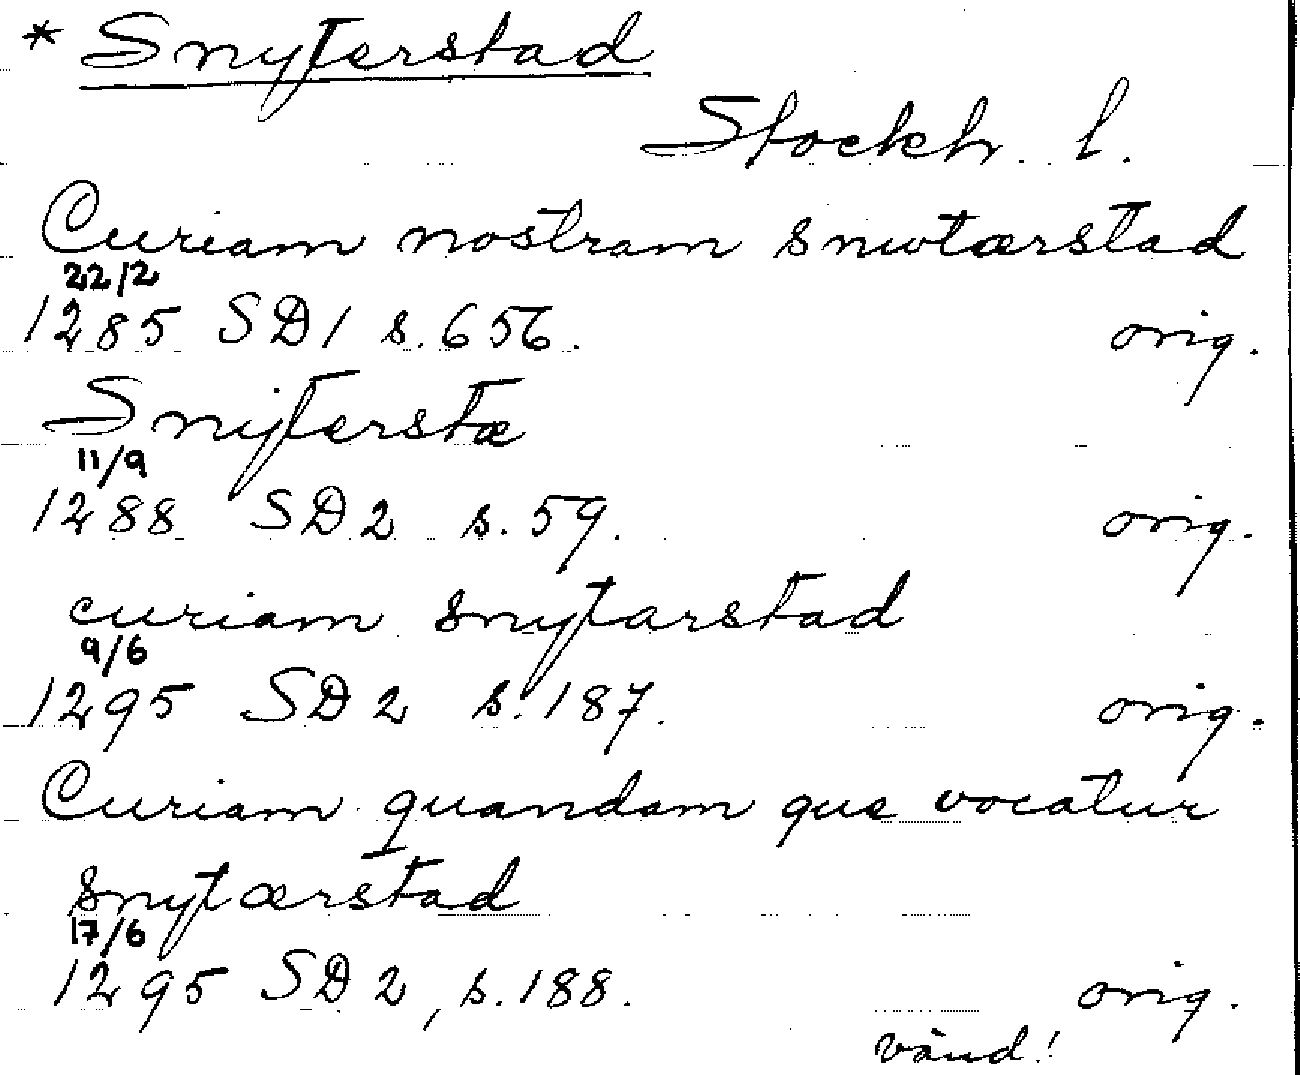 * Snyterstad
Stockh. l.
Curiam nostram snwtærstad
22/2
1285 SD1 s. 656. orig.
Snijterstæ
11/9
1288 SD2 s. 59. orig.
curiam snytarstad
9/6
1295 SD2 s. 187. orig.
Curiam quandam que vocatur
snytærstad
17/6
1295 SD2, s. 188. orig.
vänd!